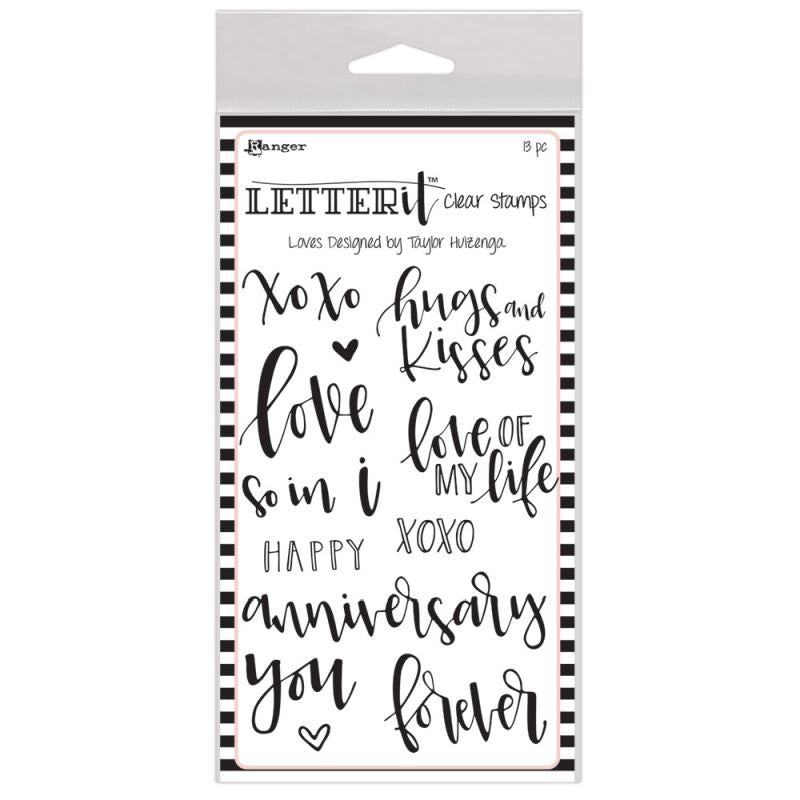 Ranger
13 pc
LETTERit™ Clear Stamps
Loves Designed by Taylor Huizenga
xoxo
hugs and
kisses
love
love OF
MY life
so in i
XOXO
HAPPY
anniversary
you
forever